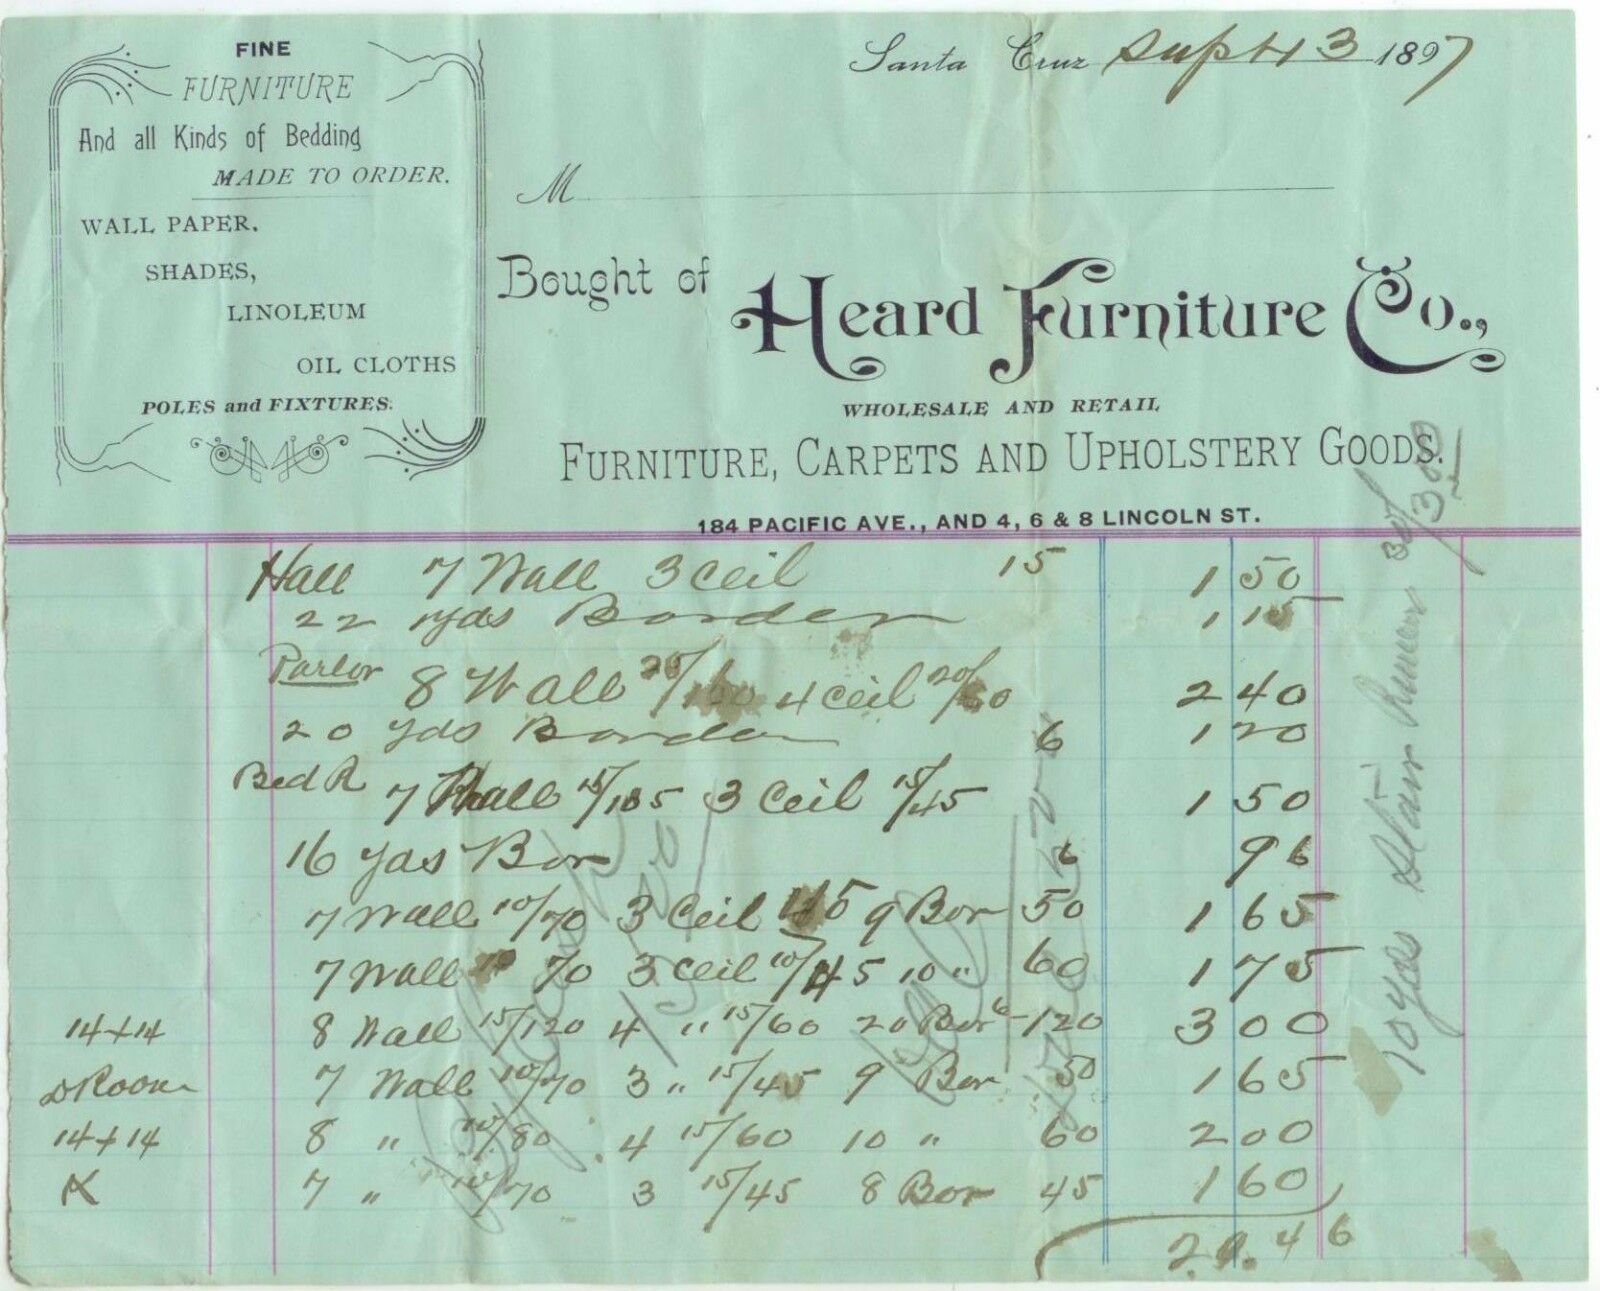 FINE
FURNITURE
And all Kinds of Bedding
MADE TO ORDER.
WALL PAPER.
SHADES,
LINOLEUM
OIL CLOTHS
POLES and FIXTURES.
Santa Cruz Sept 13 1897
M
Bought of Heard Furniture Co.,
WHOLESALE AND RETAIL
FURNITURE, CARPETS AND UPHOLSTERY GOODS.
184 PACIFIC AVE., AND 4, 6 & 8 LINCOLN ST.
Hall 7 Wall 3 Ceil 15 1 50
22 yds Border 1 15
Parlor 8 Wall 20/160 4 Ceil 20/80 2 40
20 yds Border 6 1 20
Bed R 7 Wall 15/105 3 Ceil 15/45 1 50
16 yds Bor 6 96
7 Wall 10/70 3 Ceil 45 9 Bor 50 1 65
7 Wall 70 3 Ceil 15/45 10 " 60 1 75
14+14 8 Wall 15/120 4 " 15/60 20 Bor 6 - 120 3 00
D Room 7 Wall 10/70 3 " 15/45 9 Bor 50 1 65
14+14 8 " 10/80 4 15/60 10 " 60 2 00
7 " 10/70 3 15/45 8 Bor 45 1 60
20.46
10 yds Stair Runner 30/300